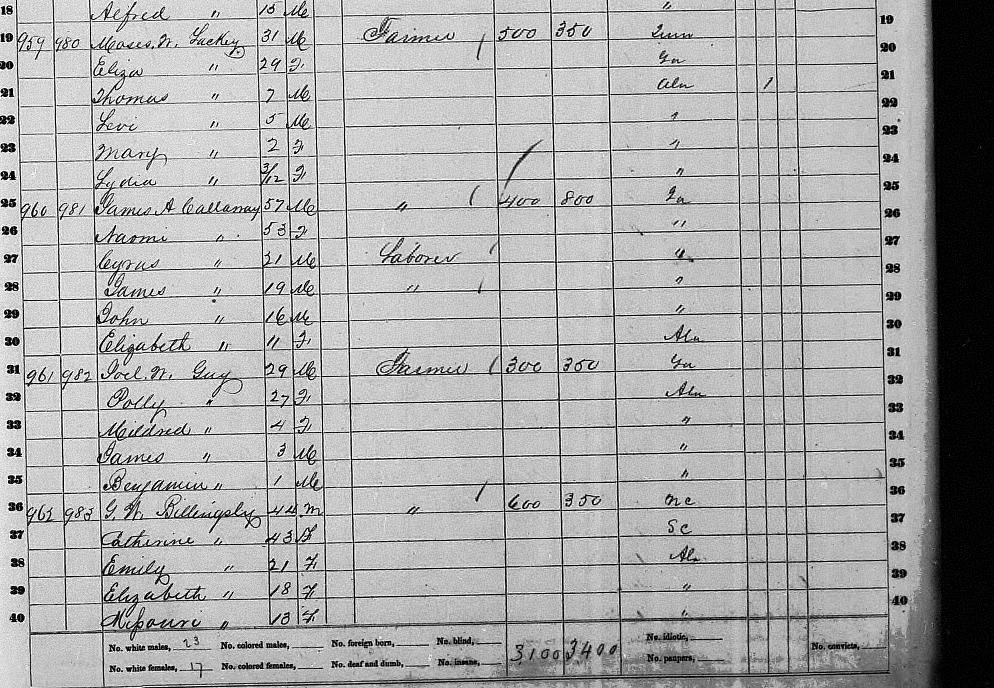 18 Alfred " 15 M " 19
19 959 980 Moses. W. Lackey 31 M Farmer 500 350 Tenn 20
20 Eliza " 29 F Ga 21
21 Thomas " 7 M Ala 1 22
22 Levi " 5 M " 23
23 Mary " 2 F " 24
24 Lydia " 3/12 F "
25 960 981 James A Callaway 57 M " 400 800 Ga 25
26 Naomi " 53 F " 26
27 Cyrus " 21 M Laborer " 27
28 James " 19 M " " 28
29 John " 16 M " 29
30 Elizabeth " 11 F Ala 30
31 961 982 Joel. W. Guy 29 M Farmer 300 350 Ga 31
32 Polly " 27 F Ala 32
33 Mildred " 4 F " 33
34 James " 3 M " 34
35 Benjamin " 1 M " 35
36 962 983 G. W. Billingsly 44 m " 600 350 NC 36
37 Catherine " 43 F SC 37
38 Emily " 21 F Ala 38
39 Elizabeth " 18 F " 39
40 Missouri " 13 F " 40
No. white males, 23 No. colored males, No. foreign born, No. blind, 3100 3400 No. idiotic, No. convicts,
No. white females, 17 No. colored females, No. deaf and dumb, No. insane, No. paupers,